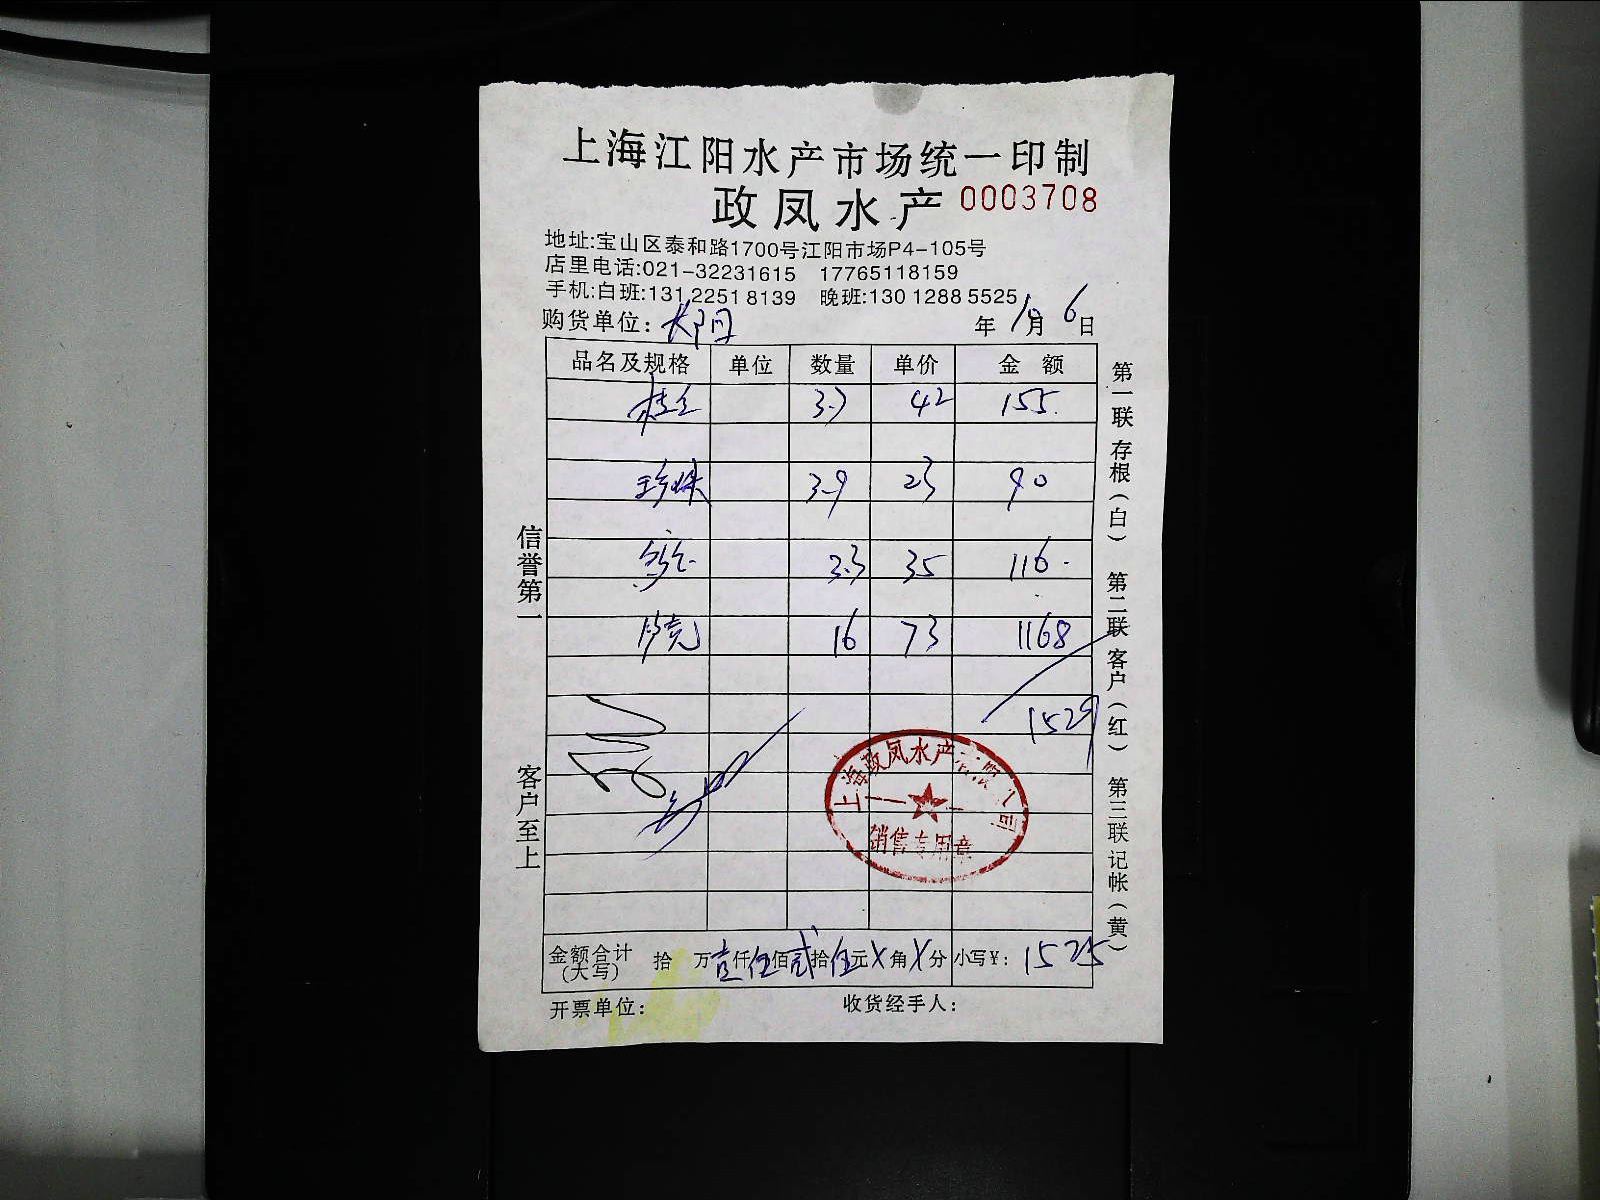 上海江阳水产市场统一印制
政凤水产 0003708
地址:宝山区泰和路1700号江阳市场P4-105号
店里电话:021-32231615 17765118159
手机:白班:131 2251 8139 晚班:130 1288 5525
购货单位: 年 10月 6日
品名及规格 单位 数量 单价 金 额
3.7 42 155
珍珠 3.9 23 90
3.3 35 116
16 73 1168
1529
上海政凤水产有限公司
销售专用章
金额合计(大写) 拾 万壹仟伍佰贰拾伍元X角X分 小写¥: 1525
开票单位: 收货经手人:
信誉第一
客户至上
第一联 存根(白)
第二联 客户(红)
第三联 记帐(黄)